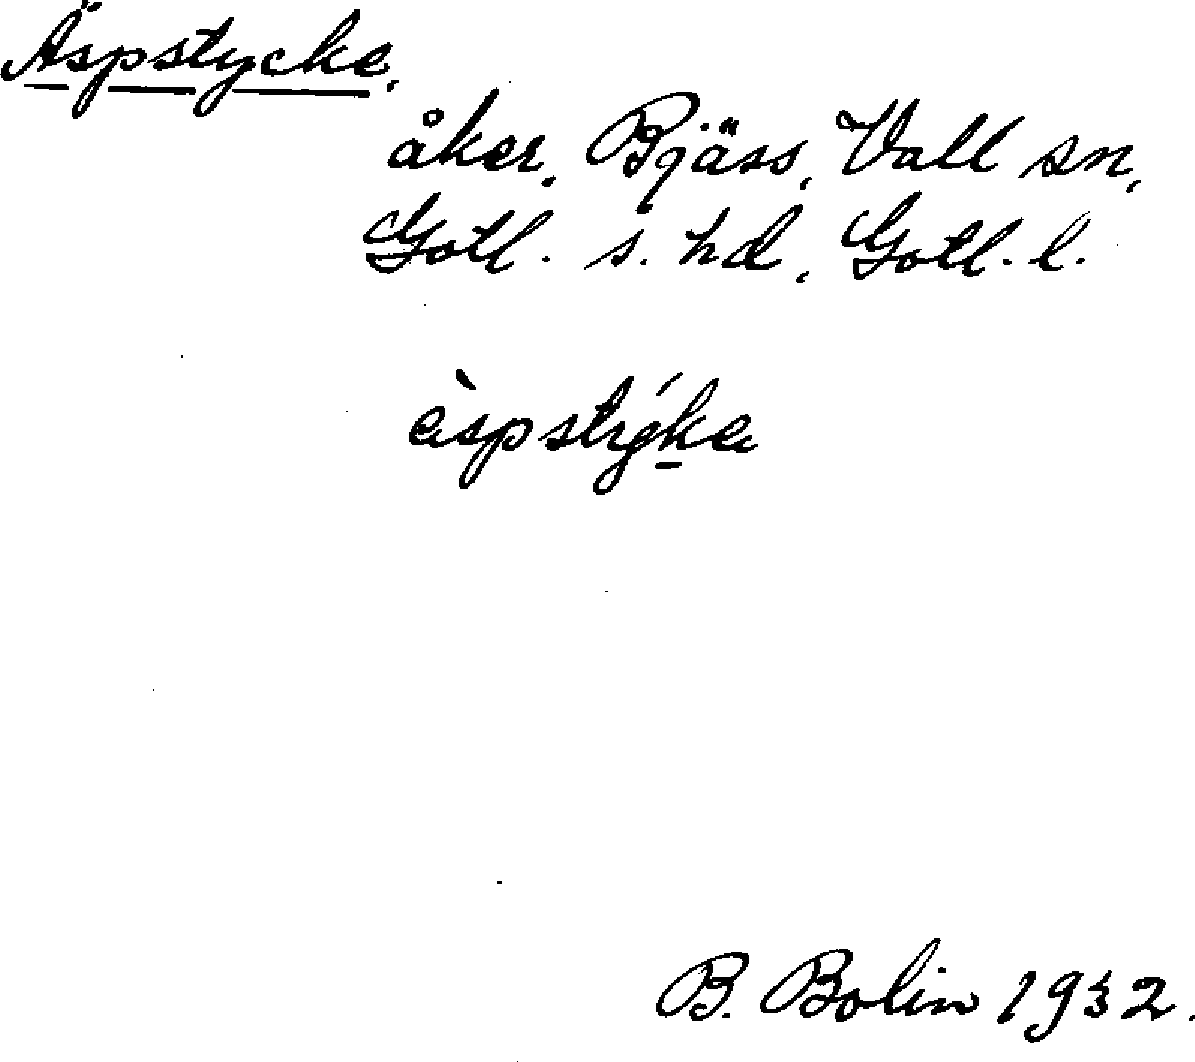 Äspstycke.
åker, Bjäss, Vall sn,
Gotl. s. hd, Gotl. l.
èspstýk̲e
B. Bolin 1932.